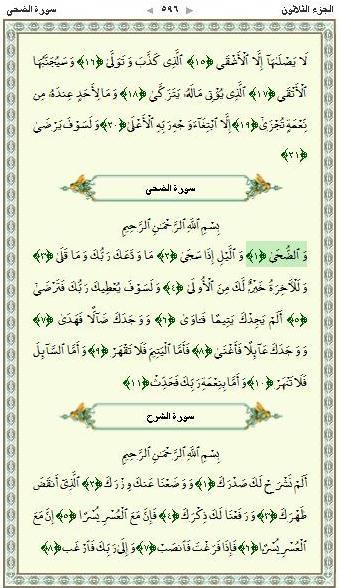 سورة الضحى ٥٩٦ الجزء الثلاثون
لَا يَصْلَىٰهَآ إِلَّا ٱلْأَشْقَى ﴿١٥﴾ ٱلَّذِى كَذَّبَ وَتَوَلَّىٰ ﴿١٦﴾ وَسَيُجَنَّبُهَا
ٱلْأَتْقَى ﴿١٧﴾ ٱلَّذِى يُؤْتِى مَالَهُۥ يَتَزَكَّىٰ ﴿١٨﴾ وَمَا لِأَحَدٍ عِندَهُۥ مِن
نِّعْمَةٍ تُجْزَىٰٓ ﴿١٩﴾ إِلَّا ٱبْتِغَآءَ وَجْهِ رَبِّهِ ٱلْأَعْلَىٰ ﴿٢٠﴾ وَلَسَوْفَ يَرْضَىٰ
﴿٢١﴾
سورة الضحى
بِسْمِ ٱللَّهِ ٱلرَّحْمَٰنِ ٱلرَّحِيمِ
وَٱلضُّحَىٰ ﴿١﴾ وَٱلَّيْلِ إِذَا سَجَىٰ ﴿٢﴾ مَا وَدَّعَكَ رَبُّكَ وَمَا قَلَىٰ ﴿٣﴾
وَلَلْءَاخِرَةُ خَيْرٌ لَّكَ مِنَ ٱلْأُولَىٰ ﴿٤﴾ وَلَسَوْفَ يُعْطِيكَ رَبُّكَ فَتَرْضَىٰٓ
﴿٥﴾ أَلَمْ يَجِدْكَ يَتِيمًا فَـَٔاوَىٰ ﴿٦﴾ وَوَجَدَكَ ضَآلًّا فَهَدَىٰ ﴿٧﴾
وَوَجَدَكَ عَآئِلًا فَأَغْنَىٰ ﴿٨﴾ فَأَمَّا ٱلْيَتِيمَ فَلَا تَقْهَرْ ﴿٩﴾ وَأَمَّا ٱلسَّآئِلَ
فَلَا تَنْهَرْ ﴿١٠﴾ وَأَمَّا بِنِعْمَةِ رَبِّكَ فَحَدِّثْ ﴿١١﴾
سورة الشرح
بِسْمِ ٱللَّهِ ٱلرَّحْمَٰنِ ٱلرَّحِيمِ
أَلَمْ نَشْرَحْ لَكَ صَدْرَكَ ﴿١﴾ وَوَضَعْنَا عَنكَ وِزْرَكَ ﴿٢﴾ ٱلَّذِىٓ أَنقَضَ
ظَهْرَكَ ﴿٣﴾ وَرَفَعْنَا لَكَ ذِكْرَكَ ﴿٤﴾ فَإِنَّ مَعَ ٱلْعُسْرِ يُسْرًا ﴿٥﴾ إِنَّ مَعَ
ٱلْعُسْرِ يُسْرًا ﴿٦﴾ فَإِذَا فَرَغْتَ فَٱنصَبْ ﴿٧﴾ وَإِلَىٰ رَبِّكَ فَٱرْغَب ﴿٨﴾